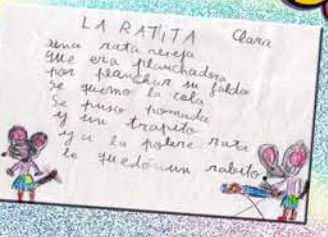 LA RATITA Clara
una rata vieja
que era planchadora
por planchar su falda
se quemo la cola
se puso pomada
y un trapito
y a la pobre rata
le quedó un rabito